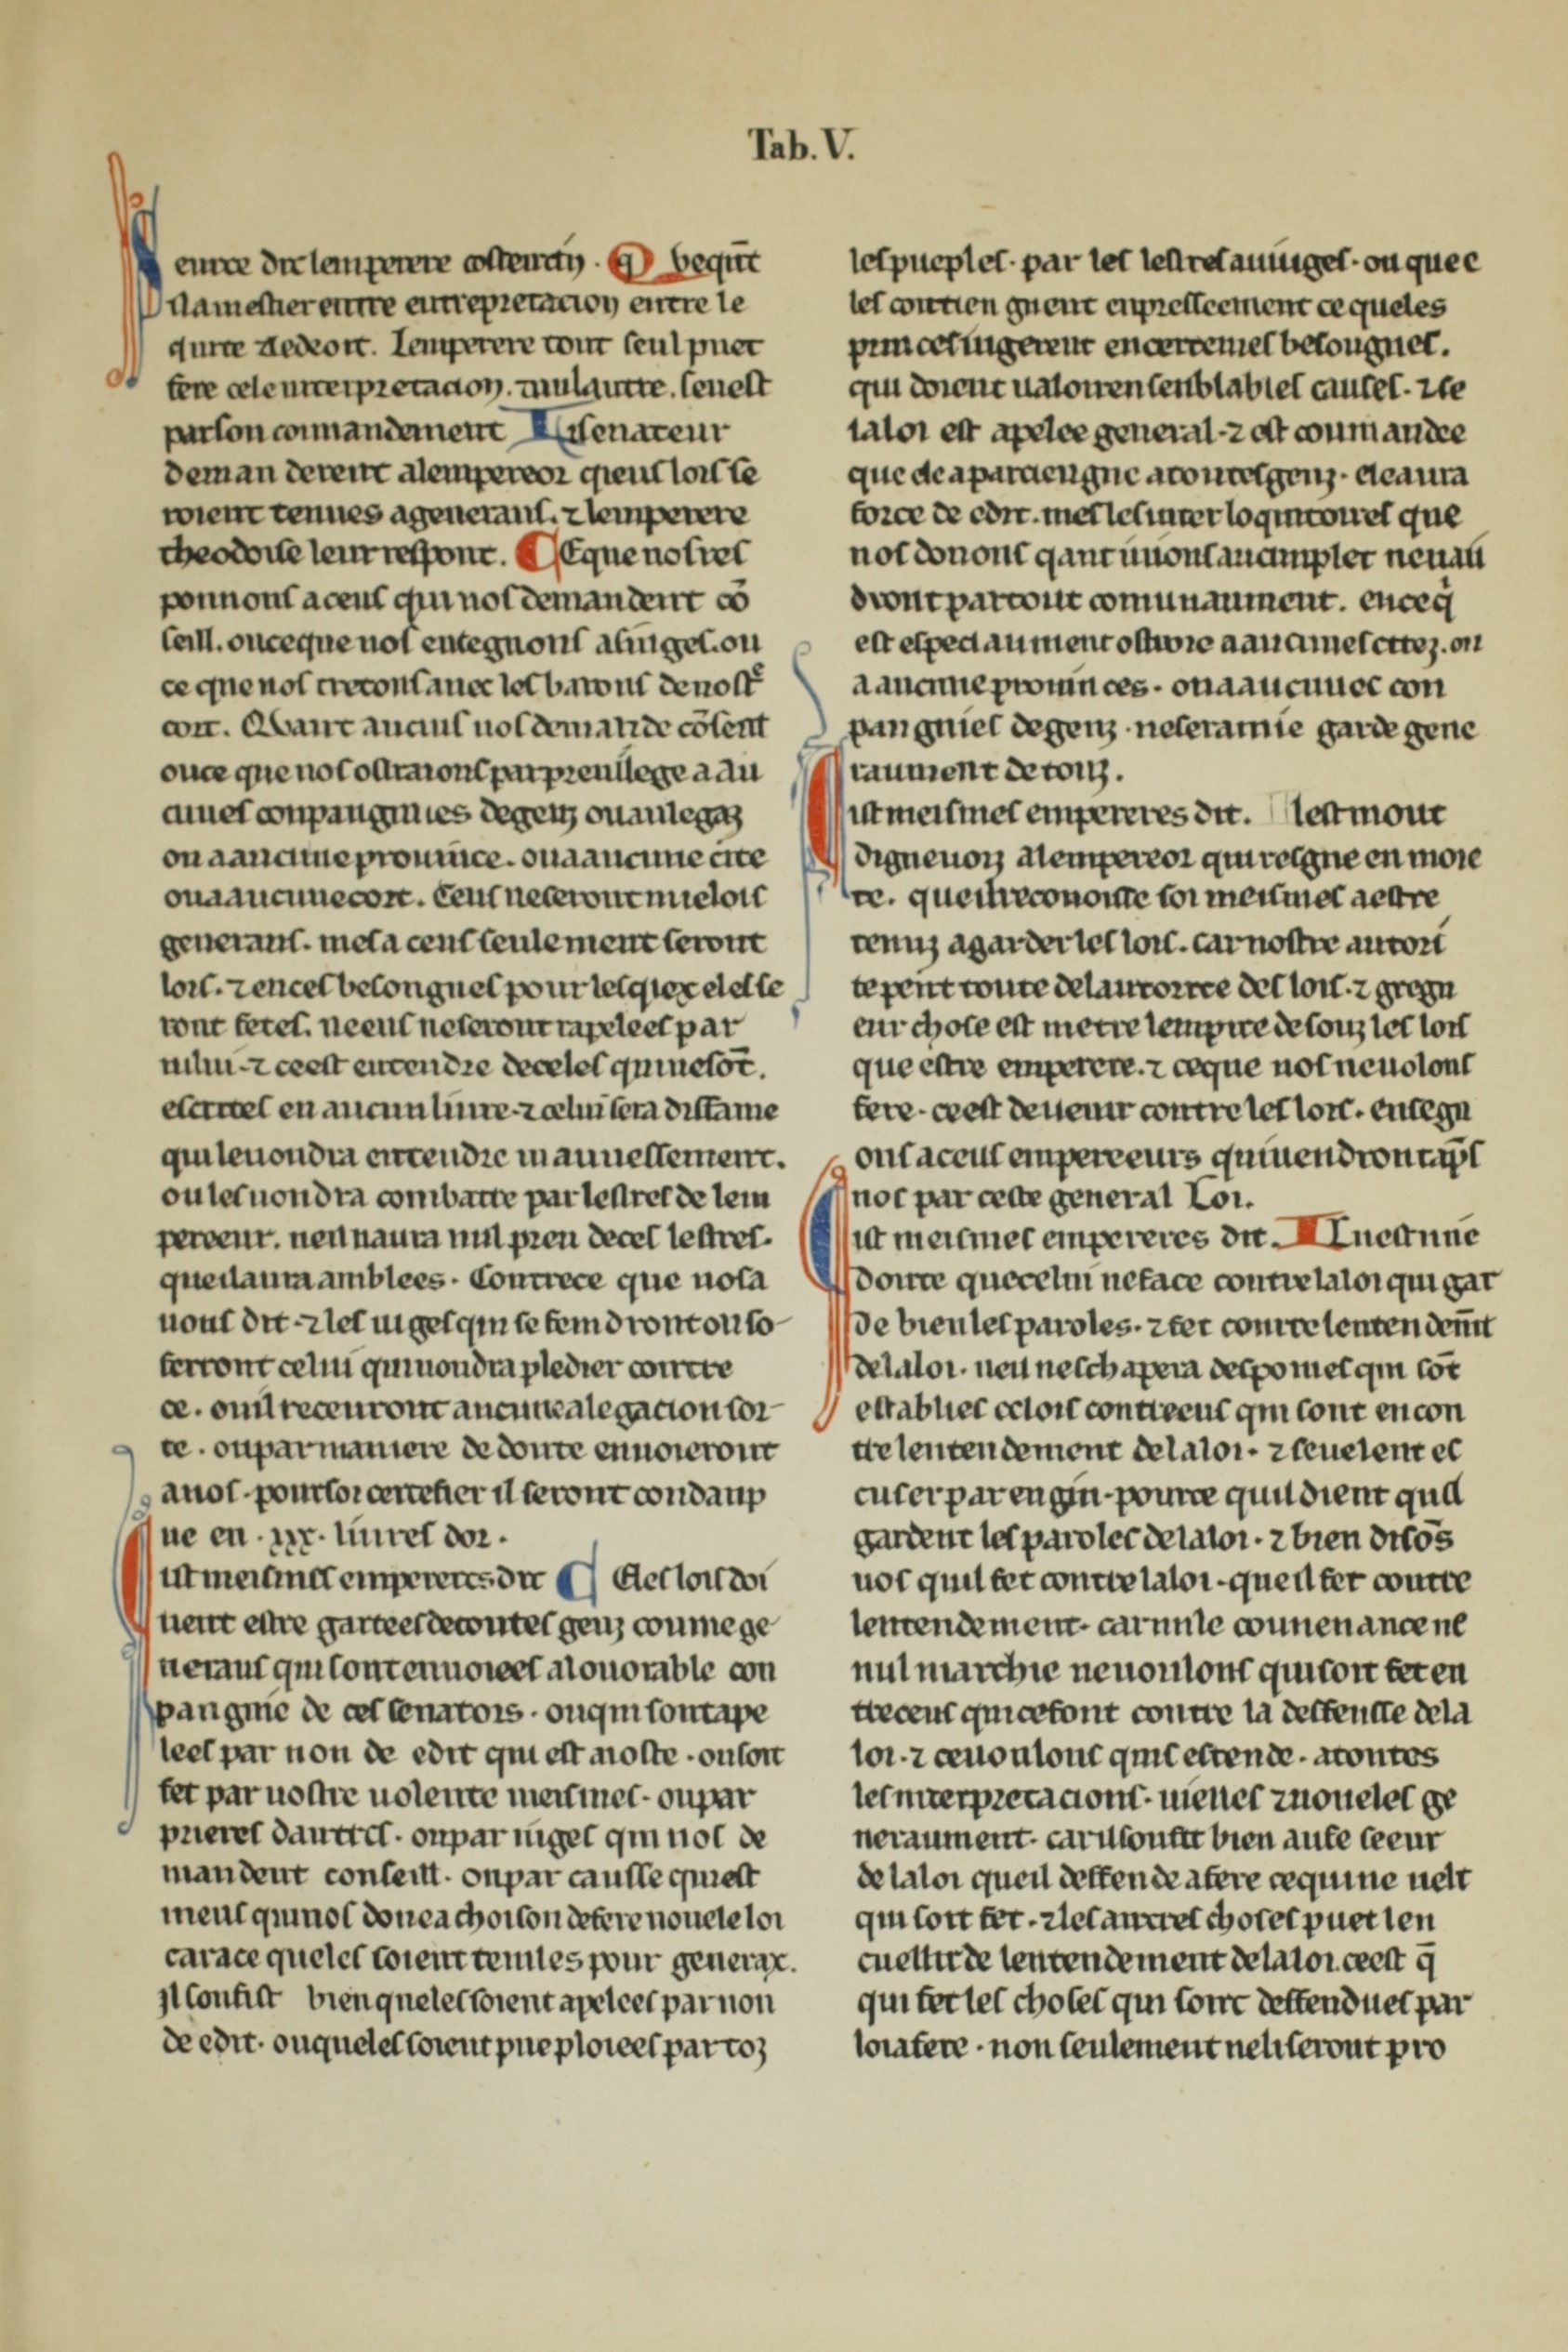 Tab. V.
eurce dit lemperere costentin. Q beqnt
il a mestier entre entrepretacion entre le
qurte ⁊ ledeort. lemperere tout seul puet
fere cele interpretacion. ⁊ nul autre. se nest
par son conmandement Li senateur
deman derent a lempereor qieus lois se
roient tenues a generaus. ⁊ lemperere
theodoise leur respont. Ce que nos res
ponnons a ceus qui nos demandent cō
seill. ou ce que nos entegnons as iuges. ou
ce que nos tretons auec les barons de nostᵉ
cort. Qvant aucuns nos demande cōseill
ou ce que nos ostraions par preuilege a au
cunes conpangnies de genz ou au legaz
ou a aucune prouince. ou a aucune cite
ou a aucune cort. Ceus ne seront mie lois
generaus. mes a ceus seulement seront
lois. ⁊ en ces besongnes pour lesqiex eles se
ront fetes. ne eus ne seront rapelees par
nilui. ⁊ ce est entendre de celes qui ne sōt.
escrites en aucun liure. ⁊ celui sera diffame
qui le uoudra entendre mauuessement.
ou les uoudra combatre par lestres de lem
pereeur. ne il naura nul preu de ces lestres.
que il aura amblees. Contre ce que nos a
uons dit. ⁊ les iuges qui se feindront ou so
ferront celui qui uoudra pledier contre
ce. ou il receuront aucune alegacion sor
te. ou par maniere de doute enuoieront
a nos. pour soi certefier il seront condanp
ne en .xxx. liures dor.
ist meismes empereres dit Ces lois doi
uent estre gartees de toutes genz coume ge
neraus qui sont enuoiees a lonorable con
pangnie de ces senators. ou qui sont ape
lees par non de edit qui est a noste. ou soit
fet par nostre uolente meismes. ou par
prieres dautres. ou par iuges qui nos de
mandent conseill. ou par causse qui est
meus qui nos donca choison de fere nouele loi
car a ce queles soient tenues pour generax.
il soufist bien queles soient apelees par non
de edit. ou queles soient pue ploiees par toz
les pueples. par les lestres au iuges. ou que e
les contien gnent expresseement ce queles
princes iugerent en certeines besougnes.
qui doient ualoir en senblables causes. ⁊ se
la loi est apelee general. ⁊ est coumandee
que ele apartiengne a toutes genz. ele aura
force de edit. mes les inter loqutoires que
nos donons qant iuions aucun plet ne uau
dront par tout comunaument. en ce q̇
est especiaument ostroie a aucunes citez. ou
a aucune prouinces. ou a aucunes con
pangnies de genz. ne sera mie garde gene
raument de touz.
ist meismes empereres dit. lest mout
digne uoiz a lempereor qui resgne en mote
te. que il reconoisse soi meismes a estre
tenuz a garder les lois. car nostre autori
te pent toute de lautorite des lois. ⁊ gregn
eur chose est metre lempire de souz les lois
que estre emperere. ⁊ ce que nos ne uolons
fere. ce est de uenir contre les lois. ensegn
ons a ceus empereeurs qui uendront ap̄s
nos par ceste general Loi.
ist meismes empereres dit. Il nest mie
doute que celui ne face contre la loi qui gar
de bien les paroles. ⁊ fet contre lenten demt̄
de la loi. ne il neschapera des poines qui sōt
establies es lois contre eus qui sont en con
tre lentendement de la loi. ⁊ se uelent es
cuser par engin. pour ce quil dient quil
gardent les paroles de la loi. ⁊ bien disōs
nos quil fet contre la loi. que il fet contre
lentendement. car nule counenance ne
nul marchie ne uoulons qui soit fet en
tre ceus qui ce font contre la deffensse de la
loi. ⁊ ce uoulons quis estende. a toutes
les interpretacions. uielles ⁊ noueles ge
neraument. car il soufit bien au feseeur
de la loi que il deffende a fere ce qui ne uelt
qui soit fet. ⁊ les autres choses puet len
cuellir de lentendement de la loi. ce est q̄
qui fet les choses qui sont deffendues par
loi a fere. non seulement ne li seront pro